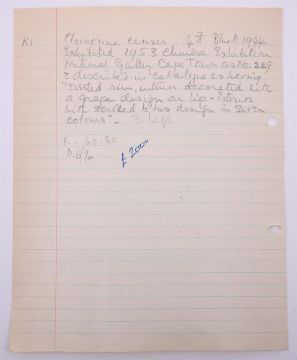 K1 Cloisonne censer. 4 7/8 Bluett 1944
Exhibited 1953 Chinese Exhibition
National Gallery Cape Town as No. 229
& described in catalogue as having
"Everted rim, interior decorated with
a grape design on lip - Exterior
with scrolled lotus design in seven
colours". 3 legs
R - 60-80
£2000